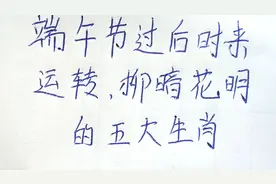 端午节过后时来
运转,柳暗花明
的五大生肖